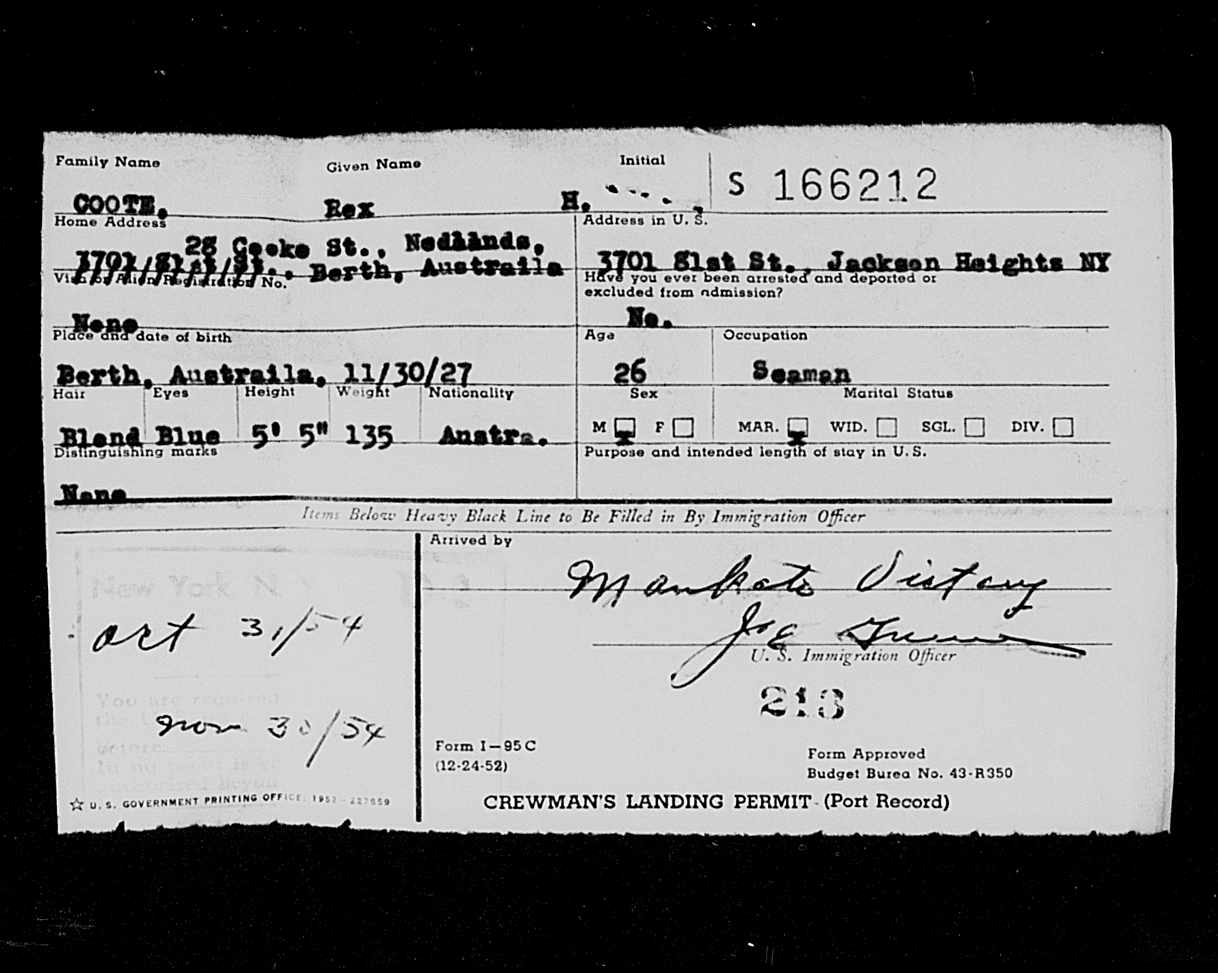 Family Name Given Name Initial S 166212
COOTE, Rex H.
Home Address Address in U. S.
28 Cooke St., Nedlands,
3701/81st/St.. Berth, Austraila 3701 81st St., Jackson Heights NY
Visa or Alien Registration No. Have you ever been arrested and deported or
excluded from admission?
None No.
Place and date of birth Age Occupation
Berth, Austraila, 11/30/27 26 Seaman
Hair Eyes Height Weight Nationality Sex Marital Status
Blond Blue 5' 5" 135 Austra. M F MAR. WID. SGL. DIV.
Distinguishing marks Purpose and intended length of stay in U. S.
None
Items Below Heavy Black Line to Be Filled in By Immigration Officer
Arrived by
New York N. Y
Mankato Victory
Oct 31/54
U. S. Immigration Officer
You are required
213
Nov 30/54
before
Form I-95 C Form Approved
(12-24-52) Budget Burea No. 43-R350
☆ U. S. GOVERNMENT PRINTING OFFICE: 1952
CREWMAN'S LANDING PERMIT (Port Record)